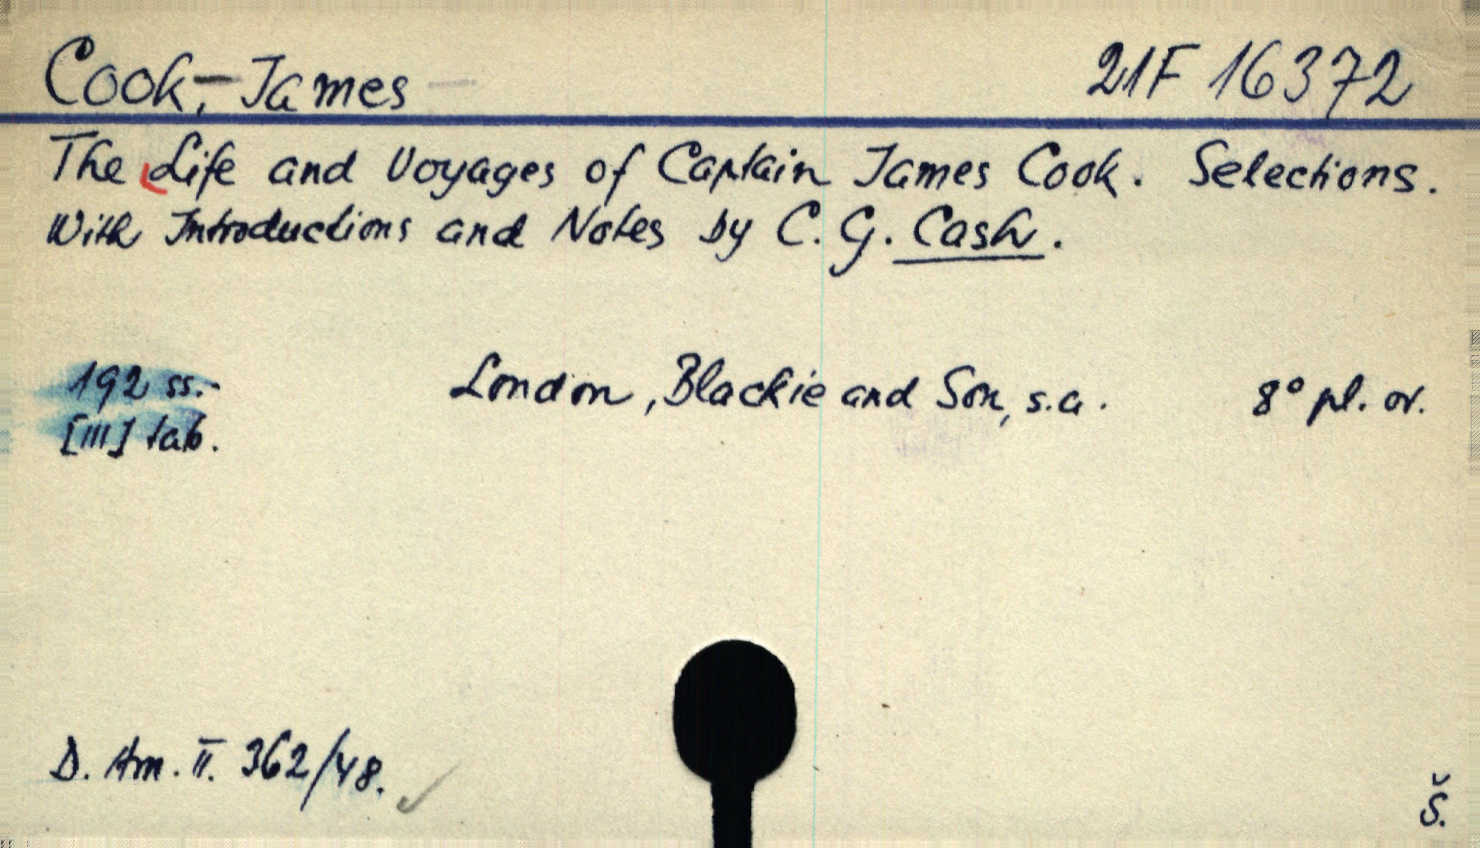 Cook, James
21F 16372
The Life and Voyages of Captain James Cook. Selections.
With Introductions and Notes by C. G. Cash.
192 ss.-
[III] tab.
London, Blackie and Son, s.a.
8° pl. or.
D. Am. II. 362/48.
Š.